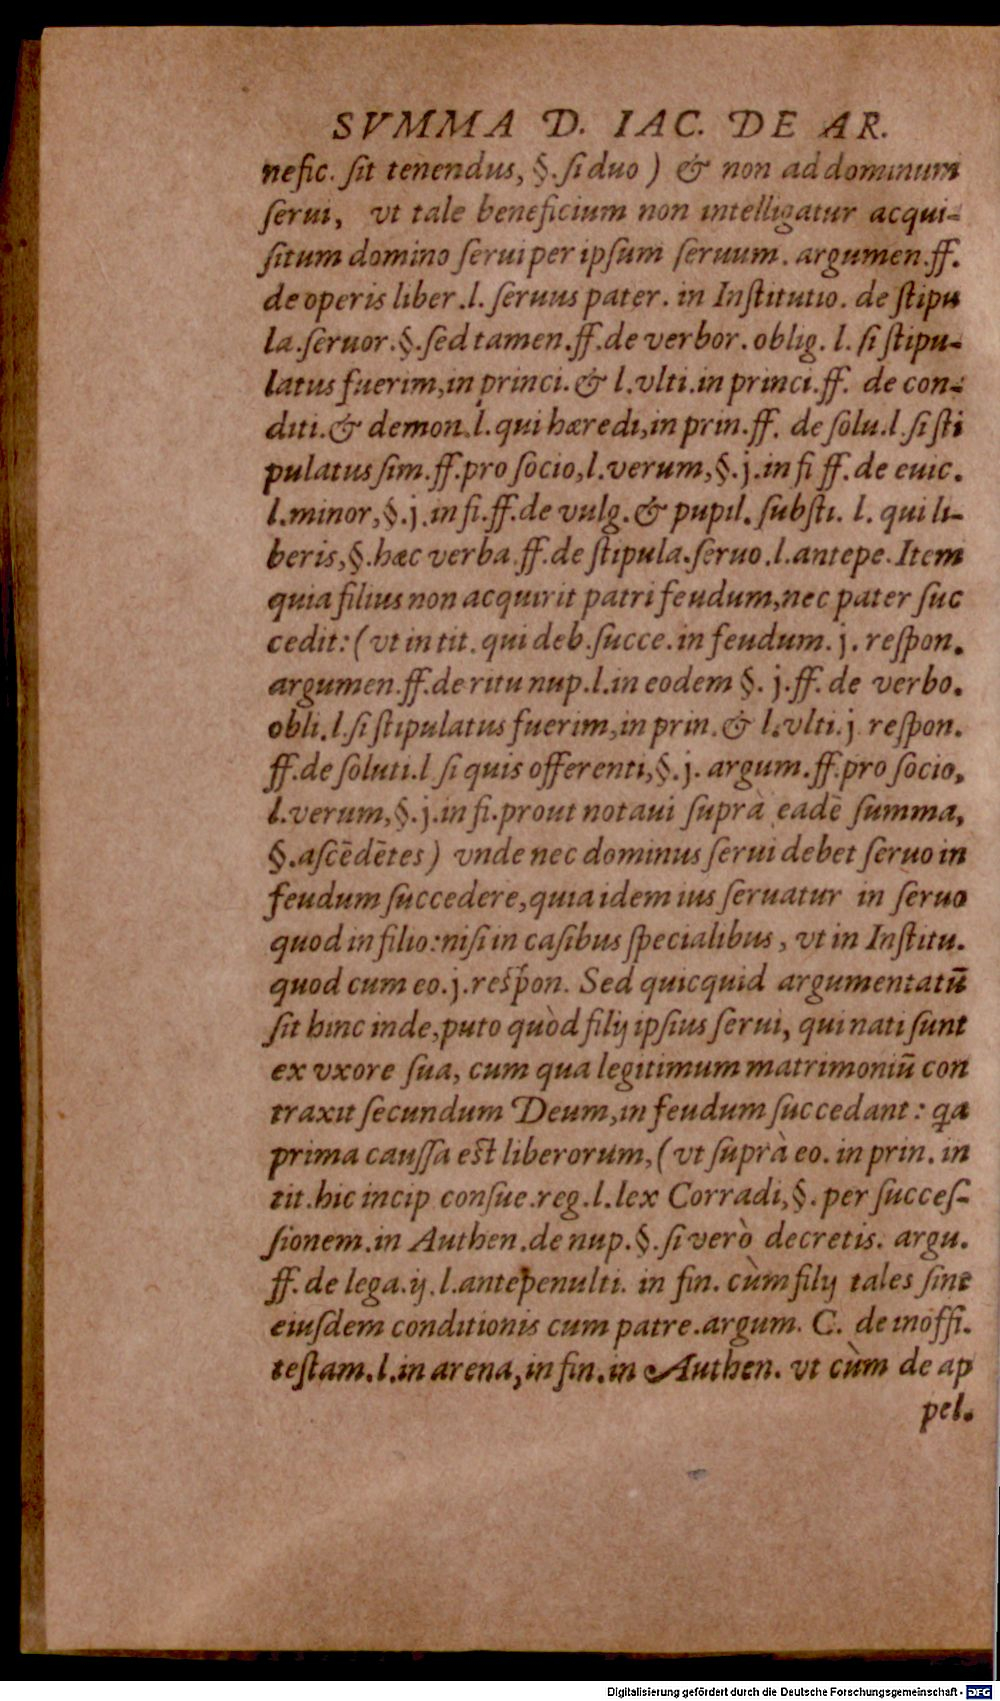 SVMMA D. IAC. DE AR.
nefic. ſit tenendus, §. ſi duo ) & non ad dominum
ſerui, vt tale beneficium non intelligatur acqui-
ſitum domino ſerui per ipſum ſeruum. argumen. ff.
de operis liber. l. ſeruus pater. in Inſtitutio. de ſtipu
la. ſeruor. §. ſed tamen. ff. de verbor. oblig. l. ſi ſtipu-
latus fuerim, in princi. & l. vlti. in princi. ff. de con-
diti. & demon. l. qui hæredi, in prin. ff. de ſolu. l. ſi ſti
pulatus ſim. ff. pro ſocio, l. verum, §. j. in fi ff. de euic.
l. minor, §. j. in fi. ff. de vulg. & pupil. ſubſti. l. qui li-
beris, §. hæc verba ff. de ſtipula. ſeruo. l. antepe. Item
quia filius non acquirit patri feudum, nec pater ſuc
cedit: ( vt in tit. qui deb. ſucce. in feudum. j. reſpon.
argumen. ff. de ritu nup. l. in eodem §. j. ff. de verbo.
obli. l. ſi ſtipulatus fuerim, in prin. & l. vlti. j reſpon.
ff. de ſoluti. l ſi quis offerenti, §. j. argum. ff. pro ſocio,
l. verum, §. j. in fi. prout notaui ſuprà eadē ſumma,
§. aſcēdētes ) vnde nec dominus ſerui debet ſeruo in
feudum ſuccedere, quia idem ius ſeruatur in ſeruo
quod in filio: niſi in caſibus ſpecialibus, vt in Inſtitu.
quod cum eo. j. reſpon. Sed quicquid argumentatū
ſit hinc inde, puto quòd filij ipſius ſerui, qui nati ſunt
ex vxore ſua, cum qua legitimum matrimoniū con
traxit ſecundum Deum, in feudum ſuccedant: qa
prima cauſſa eſt liberorum, ( vt ſuprà eo. in prin. in
tit. hic incip conſue. reg. l. lex Corradi, §. per ſucceſ-
ſionem. in Authen. de nup. §. ſi verò decretis. argu.
ff. de lega. ij. l. antepenulti. in fin. cùm filij tales ſint
eiuſdem conditionis cum patre. argum. C. de inoffi.
teſtam. l. in arena, in fin. in Authen. vt cùm de ap
pel.
Digitalisierung gefördert durch die Deutsche Forschungsgemeinschaft - DFG